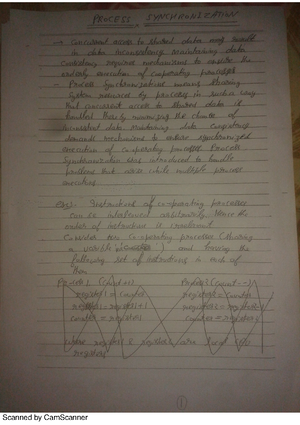 PROCESS SYNCHRONIZATION
→ Concurrent access to shared data may result
in data inconsistency maintaining data
consistency requires mechanisms to ensure the
orderly execution of cooperating processes
- Process Synchronization means sharing
system resources by processes in such a way
that concurrent access to shared data is
handled thereby minimizing the chance of
inconsistent data maintaining data consistency
demands mechanisms to ensure synchronized
execution of cooperating processes Process
Synchronization was introduced to handle
problems that arise while multiple process
executing
Instructions of co-operating processes
can be interleaved arbitrarily. Hence the
order of instructions is irrelevant
Consider two co-operating processes (sharing
a variable ) and having the
following set of instructions in each of
them
(counter) (count--)
register1 = counter register2 = counter
register1 = register1 register2 = register2
counter = register1 counter = register2
where register1 & register2 are local
registers
①
Scanned by CamScanner